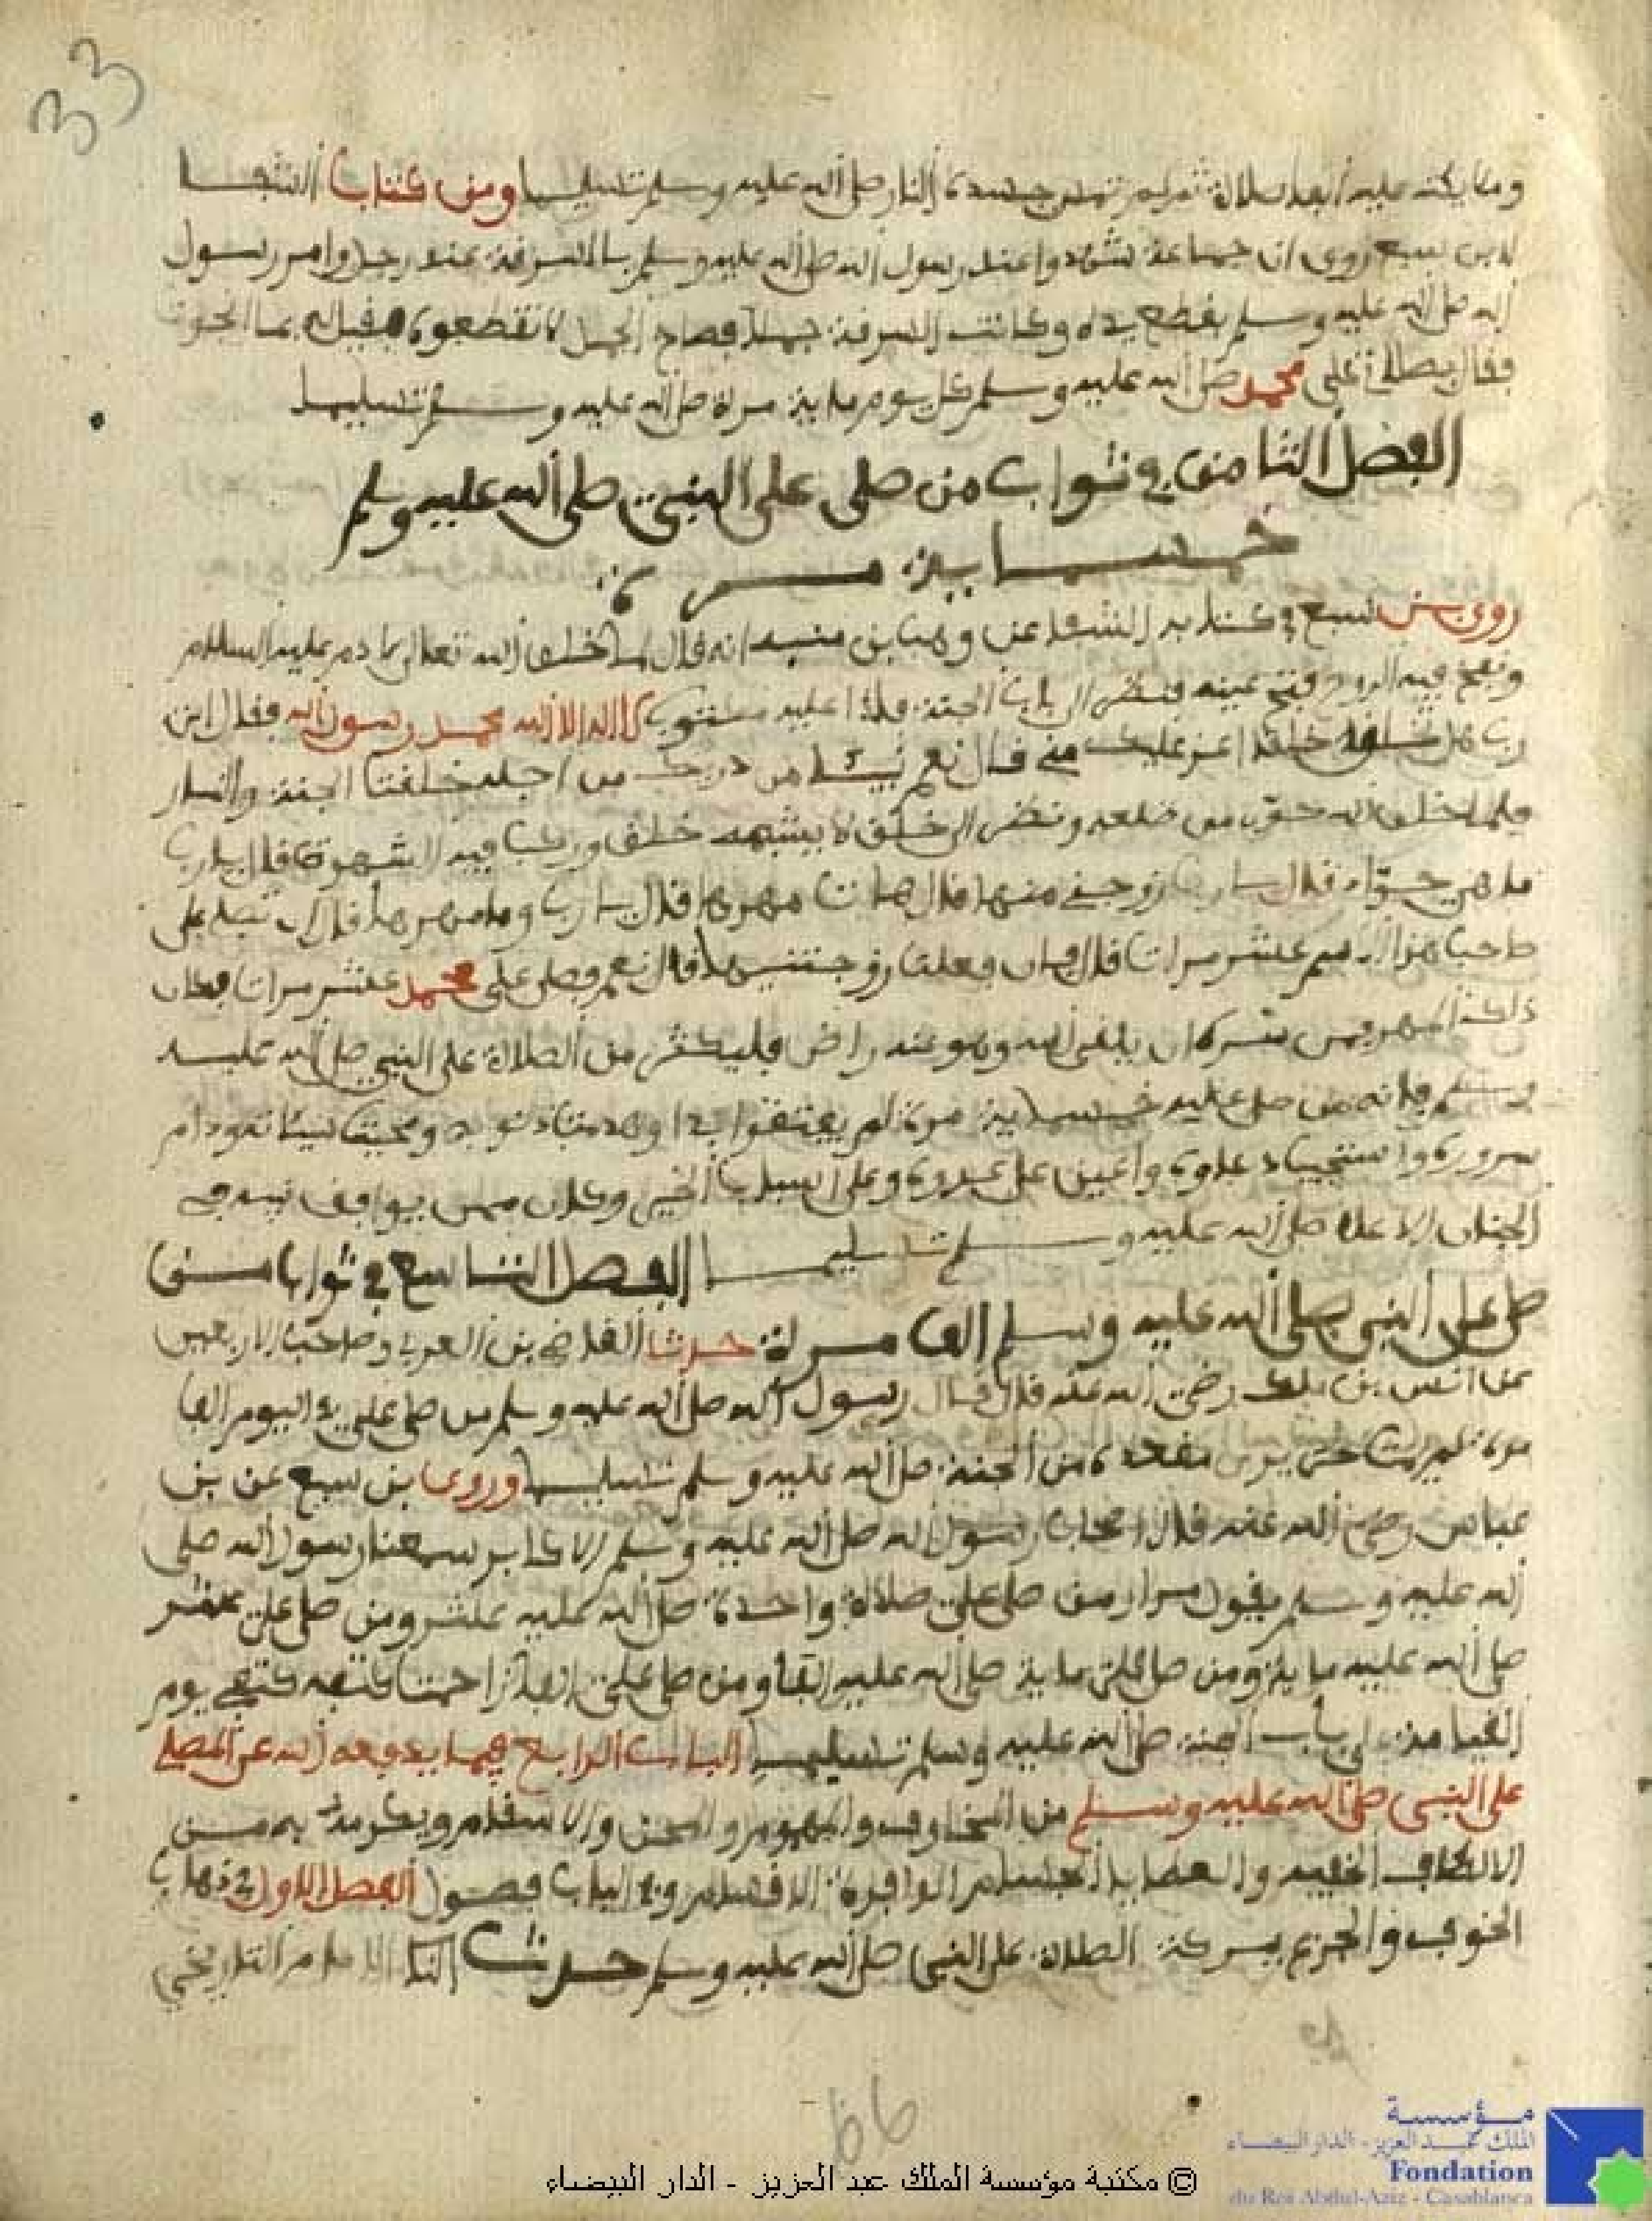 33
وملائكته عليه أبدا سلاما ثم لم تمس جسده النار صلى الله عليه وسلم تسليما ومن كتاب الشفا
لابن سبع روي ان جماعة شهدوا عند رسول الله صلى الله عليه وسلم بالسرقة عند رجل وامر رسول
الله صلى الله عليه وسلم بقطع يده وكانت السرقة جملا فصاح الجمل لا تقطعوه فقيل له بما نجوت
فقال بصلاتي على محمد صلى الله عليه وسلم كل يوم ماية مرة صلى الله عليه وسلم تسليما
الفصل الثامن في ثواب من صلى على النبي صلى الله عليه وسلم
خمسماية مرة
روى بن سبع في كتابه الشفا عن وهب بن منبه انه قال لما خلق الله تعالى ءادم عليه السلام
ونفخ فيه الروح فتح عينه فنظر الى باب الجنة فإذا عليه مكتوب لا اله الا الله محمد رسول الله فقال اين
رب هل تخلق خلقا اعز عليك مني قال نعم نبيئا من ذريتك من اجله خلقت الجنة والنار
فلما خلق الله حوى من ضلعه ونظر الى خلق لا يشبهه خلق وركب فيه الشهوة قال يارب
ما هي حواء قال يا رب زوجني منها قال هات مهرها قال يا رب وما مهرها قال ان تصلي على
صاحب هذا الاسم عشر مرات قال فان فعلت زوجتنيها قال نعم فصلى على محمد عشر مرات فكان
ذلك المهر فمن سره ان يلقى الله وهو عنه راض فليكثر من الصلاة على النبي صلى الله عليه
وسلم فإنه من صلى عليه خمسماية مرة لم يفتقر ابدا وهدمت ذنوبه ومحيت سيئاته ودام
سروره واستجيب دعاؤه واعين على عدوه وعلى اسباب الخير وكان ممن يوافق نبيه في
الجنان الاعلا صلى الله عليه وسلم تسليما الفصل التاسع في ثواب من
صلى على النبي صلى الله عليه وسلم الف مرة حدثنا القاضي بن العربي وصاحب الاربعين
عن انس بن ملك رضي الله عنه قال قال رسول الله صلى الله عليه وسلم من صلى علي في اليوم الف
مرة لم يمت حتى يرى مقعده من الجنة صلى الله عليه وسلم تسليما وروى بن سبع عن بن
عباس رضي الله عنه قال اصحاب رسول الله صلى الله عليه وسلم الاكابر سمعنا رسول الله صلى
الله عليه وسلم يقول مرارا من صلى علي صلاة واحدة صلى الله عليه عشر ومن صلى علي عشر
صلى الله عليه ماية ومن صلى علي ماية صلى الله عليه الفا ومن صلى علي الفا زاحمت كتفه كتفي يوم
القيامة على باب الجنة صلى الله عليه وسلم تسليما الباب الرابع فيما يدفعه الله عن المصلي
على النبي صلى الله عليه وسلم من المخاوف والهموم والمحن والاسقام ويكرمه به من
الالطاف الخفيه والعطايا الجسام الوافرة الاقسام وفي الباب فصول الفصل الاول في ذهاب
الخوف والجزع ببركة الصلاة على النبي صلى الله عليه وسلم حدث الامام التاريخي
66
مؤسسة
الملك عبد العزيز - الدار البيضاء
Fondation
du Roi Abdul-Aziz - Casablanca
© مكتبة مؤسسة الملك عبد العزيز - الدار البيضاء